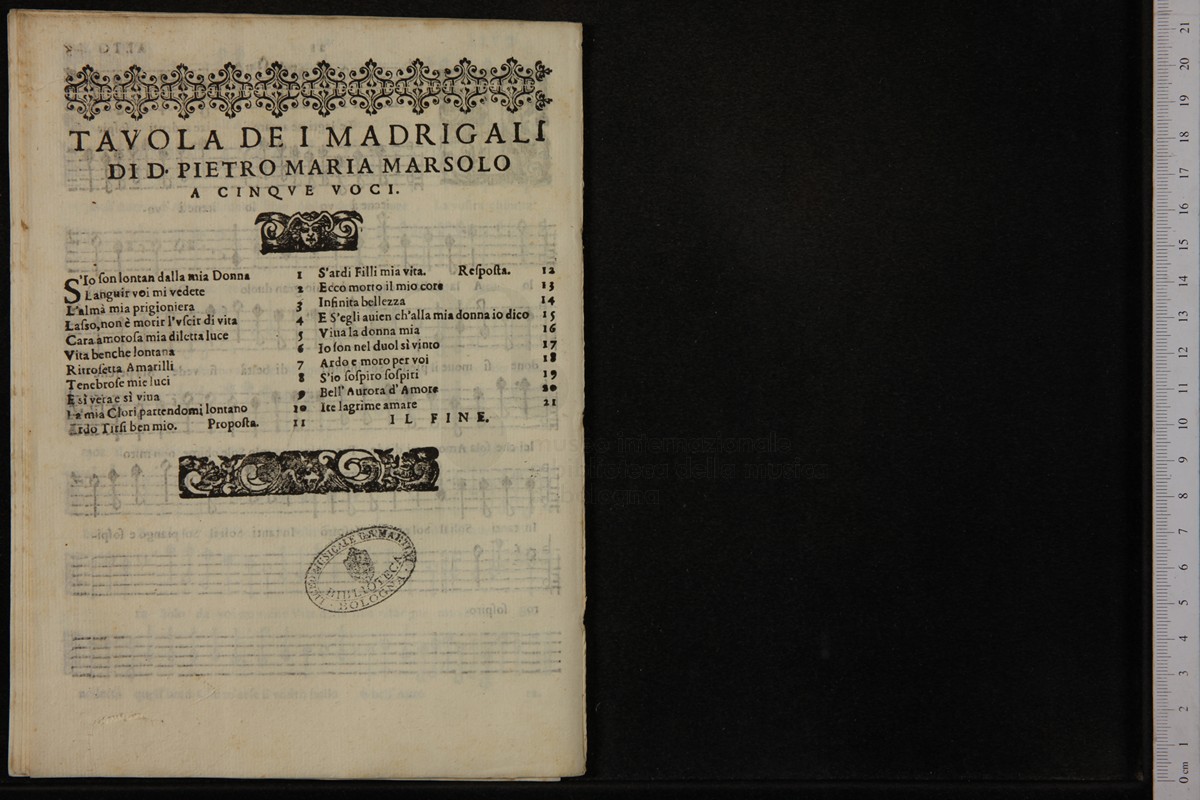 TAVOLA DE I MADRIGALI
DI D. PIETRO MARIA MARSOLO
A CINQVE VOCI.
S'Io ſon lontan dalla mia Donna 1
Languir voi mi vedete 2
L'alma mia prigioniera 3
Laſso, non è morir l'vſcir di vita 4
Cara amoroſa mia diletta luce 5
Vita benche lontana 6
Ritroſetta Amarilli 7
Tenebroſe mie luci 8
E sì vera e sì viua 9
La mia Clori partendomi lontano 10
Ardo Tirſi ben mio. Propoſta. 11
S'ardi Filli mia vita. Reſpoſta. 12
Ecco morto il mio core 13
Infinita bellezza 14
E S'egli auien ch'alla mia donna io dico 15
Viua la donna mia 16
Io ſon nel duol sì vinto 17
Ardo e moro per voi 18
S'io ſoſpiro ſoſpiri 19
Bell' Aurora d' Amore 20
Ite lagrime amare 21
IL FINE.
LICEO MUSICALE G.B. MARTINI
BIBLIOTECA
BOLOGNA
Museo internazionale
e biblioteca della musica
bologna
0 cm 1 2 3 4 5 6 7 8 9 10 11 12 13 14 15 16 17 18 19 20 21